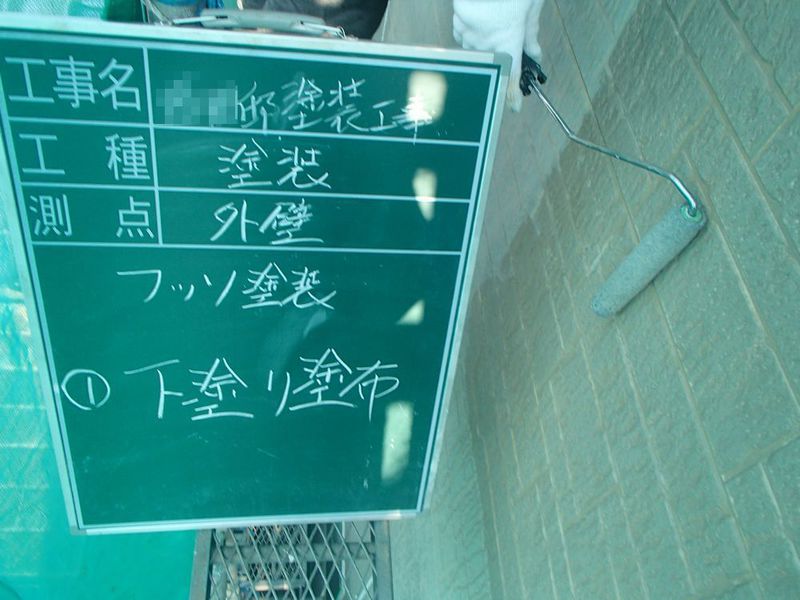 工事名 邸塗装工事
工種 塗装
測点 外壁
フッソ塗装
① 下塗り塗布